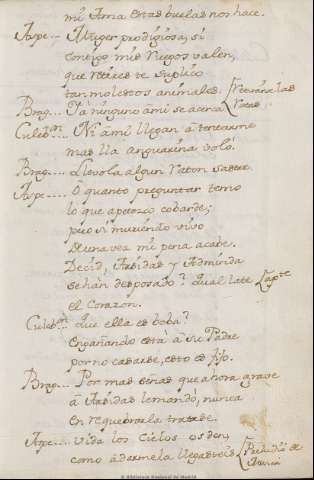 mi Ama estas burlas nos hace.
Aspe... Muger prodigiosa, si
contigo mis ruegos valen,
que retires te suplico
tan molestos animales. Retiranse las
Brag... Ya ninguno a mi se acerca Ratas.
Culebrⁿ. Ni a mi llegan à tentarme
mas lla anguarina voló.
Brag... Llevola algun raton sastre.
Aspe.... O quanto preguntar temo
lo que apetezco cobarde;
pero si muriendo vivo
de una vez mi pena acabe.
Decid, Arsidas y Admirida
se han desposado? Qual late apte
el corazon.
Culebⁿ.. Que ella es boba?
Engañando està à su Padre
por no casarse, esto es fijo.
Brag... Por mas señas que ahora grave
à Arsidas lemando, nunca
en requebrarla tratase.
Aspe.... Vida los Cielos os den,
como à darmela llegasteis
© Biblioteca Nacional de Madrid